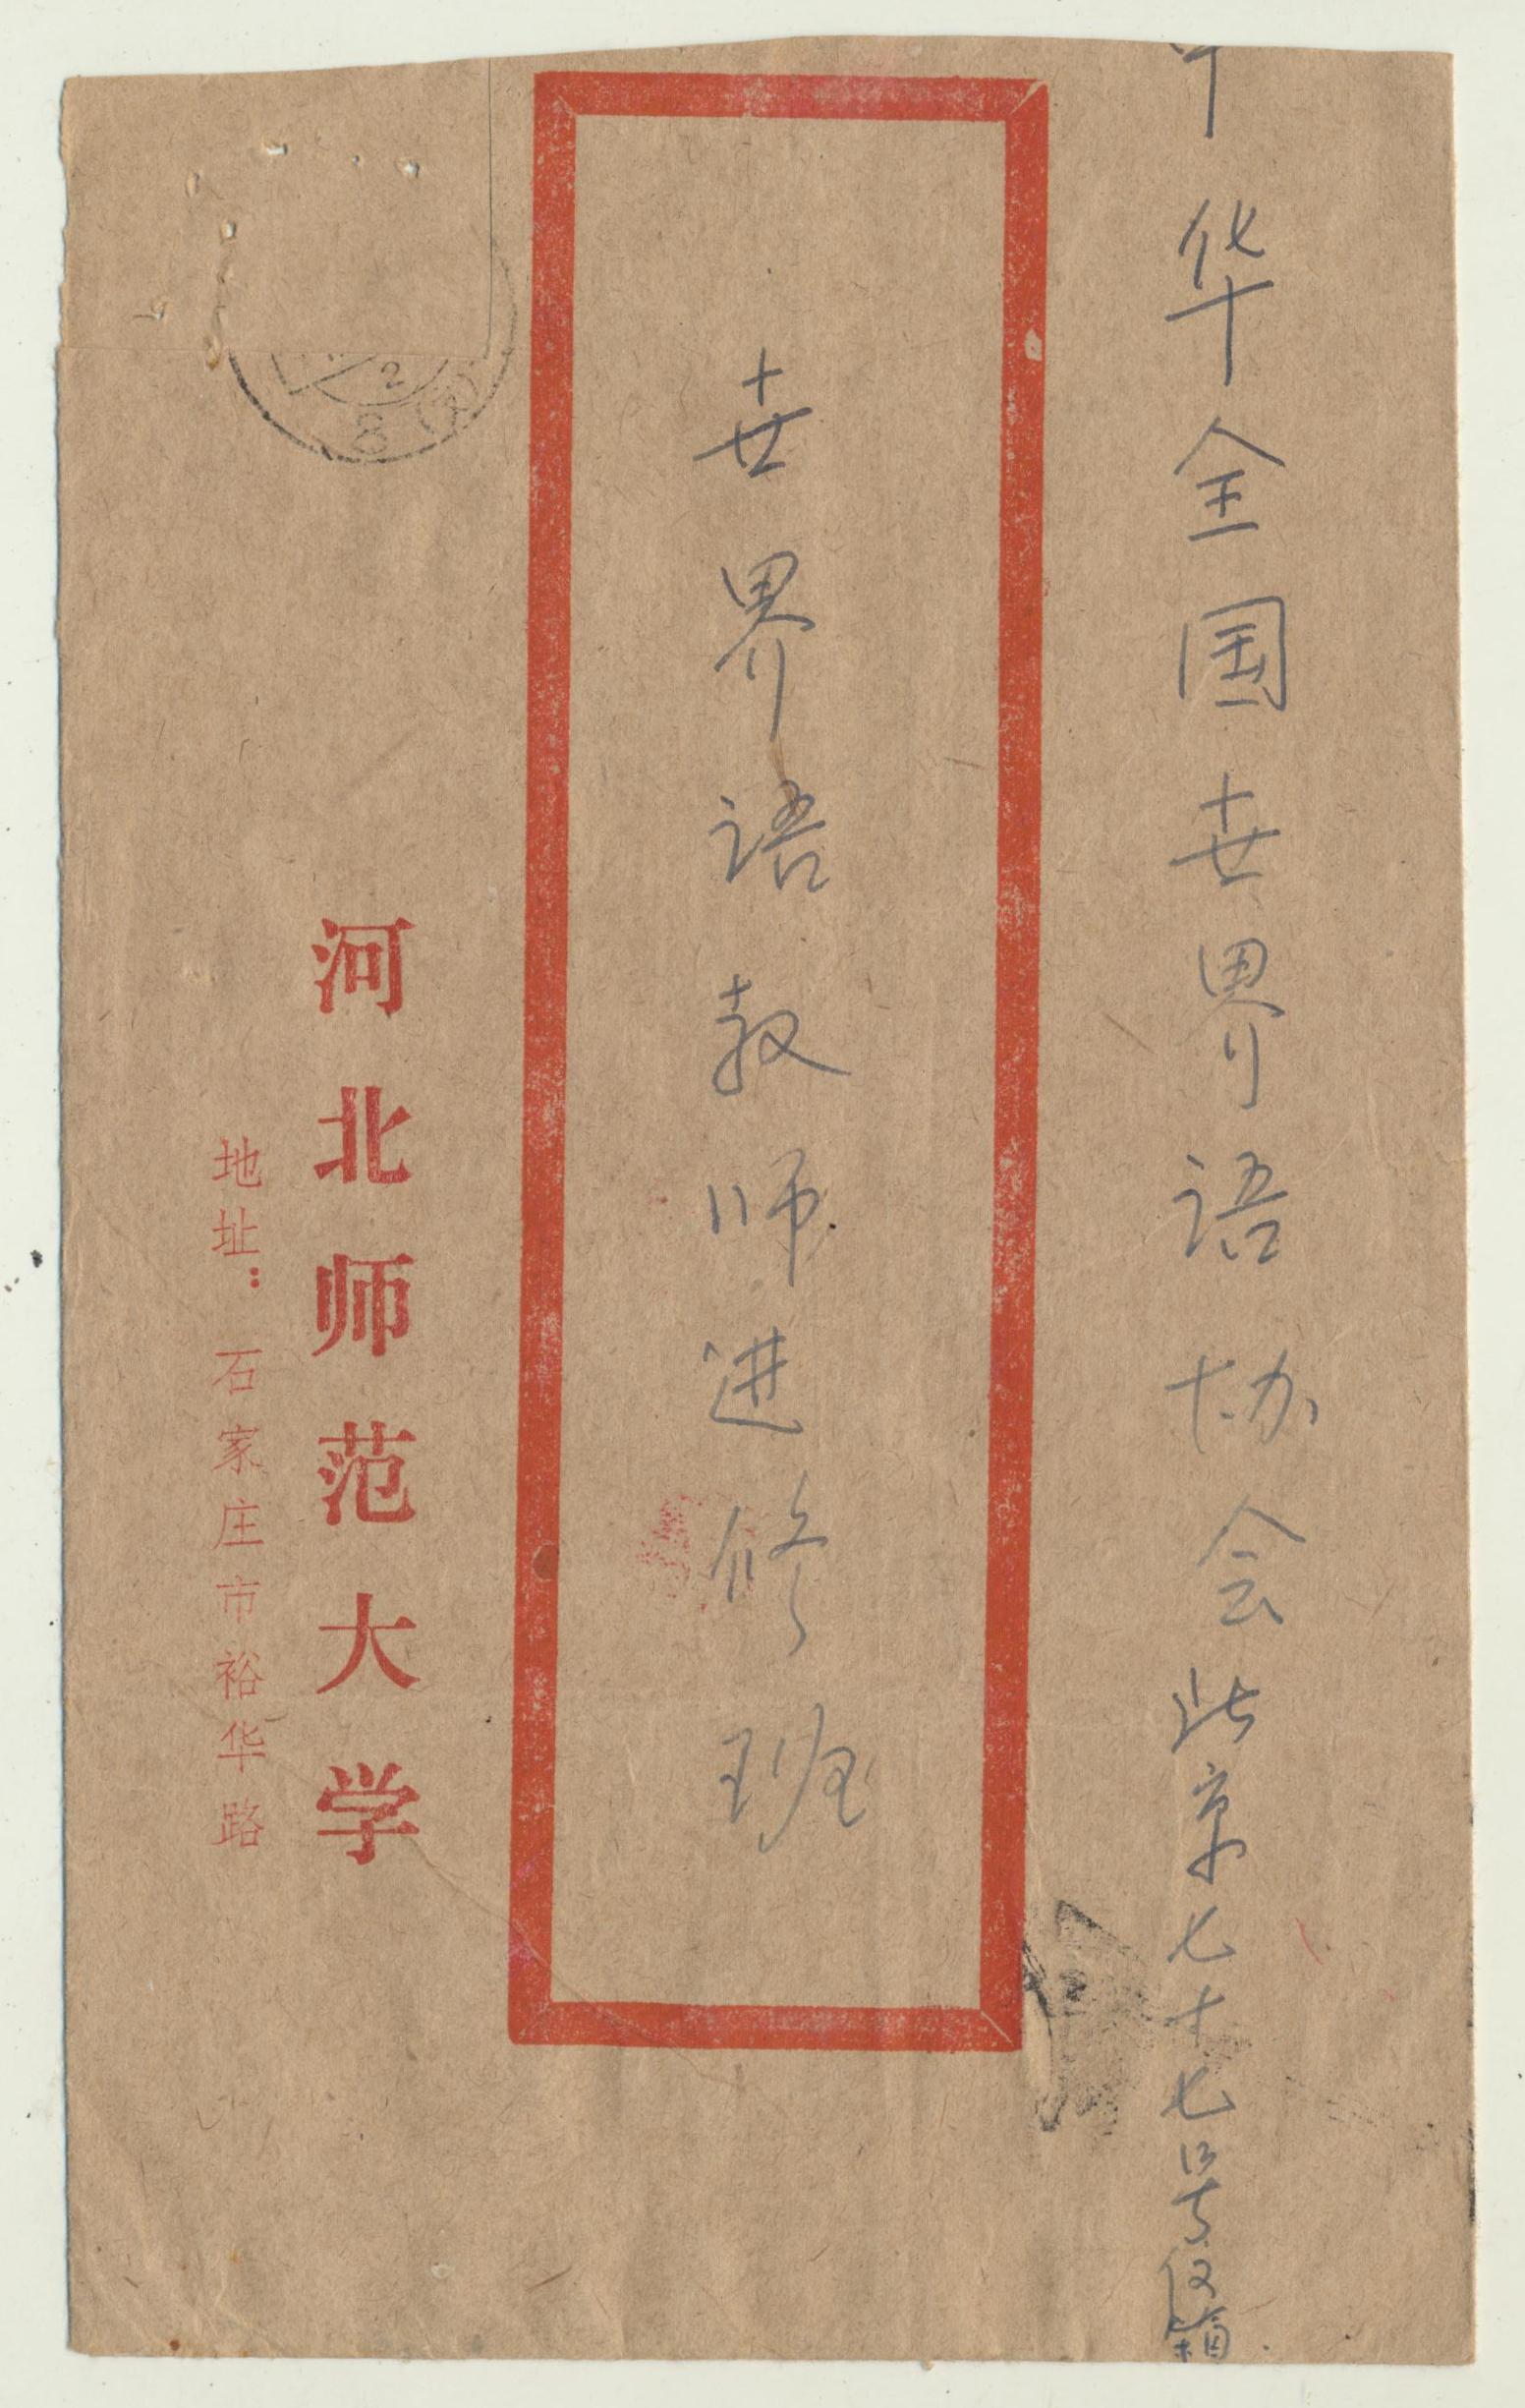 中华全国世界语协会北京七十七号信箱
世界语教师进修班
河北师范大学
地址：石家庄市裕华路
2
8